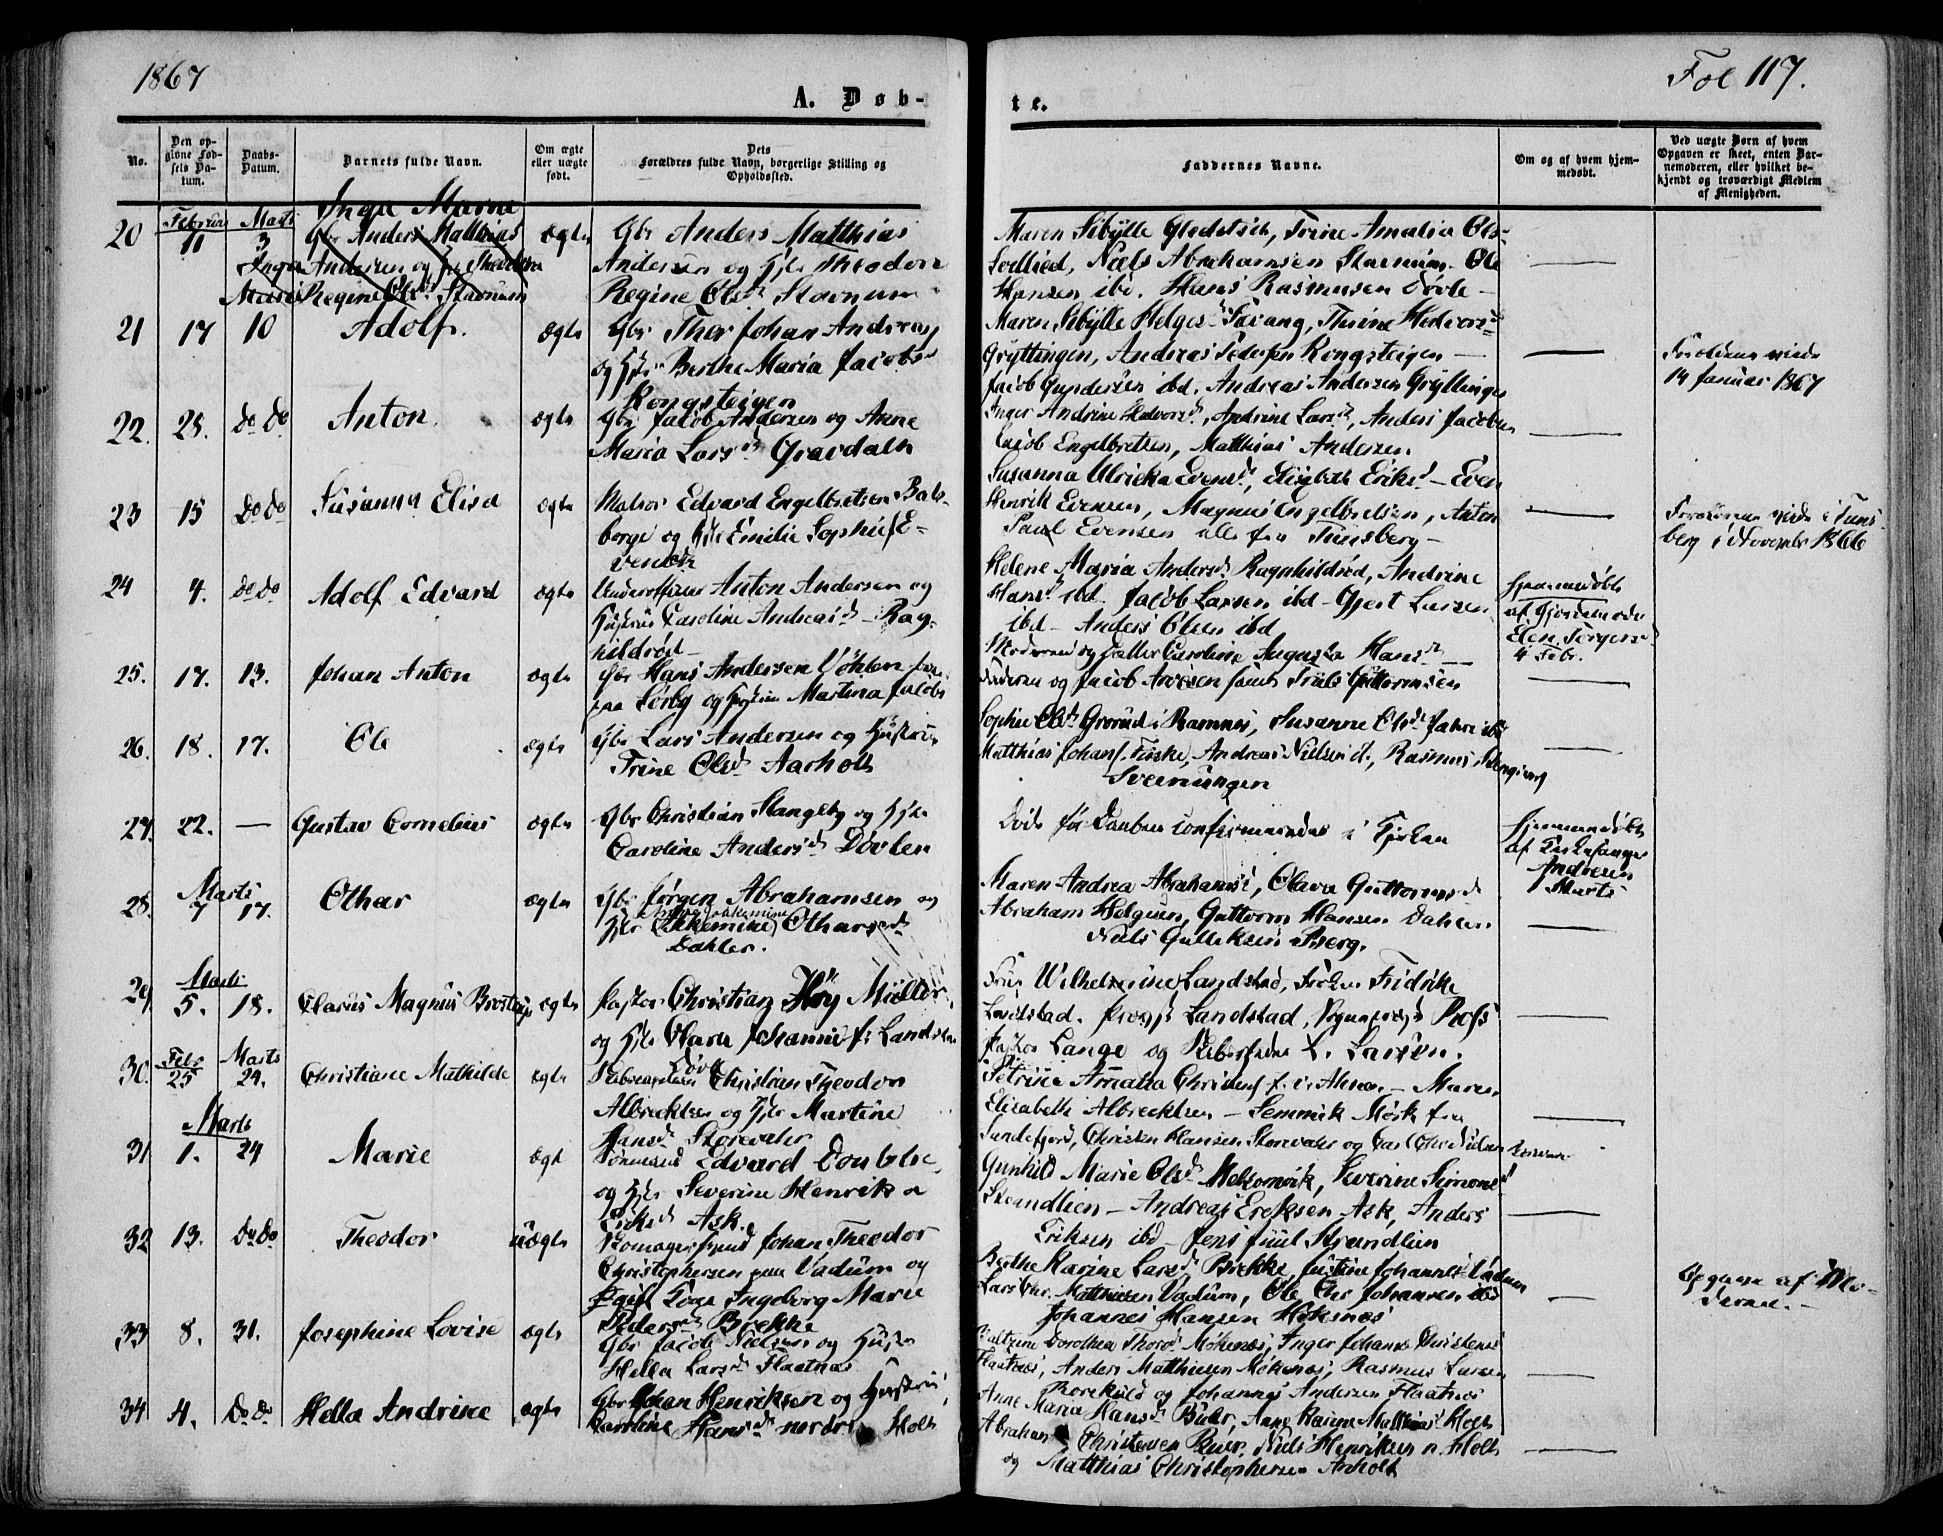 1867
Fol 117.
A. Døb-
te.
No.
Den op-
givne Fød-
sels Da-
tum.
Daabs-
Datum.
Barnets fulde Navn.
Om ægte
eller uægte
født.
Dets
Forældres fulde Navn, borgerlige Stilling og
Opholdssted.
Faddernes Navne.
Om og af hvem hjem-
medøbt.
Ved uægte Børn af hvem
Opgaven er skeet, enten Bar-
nemoderen, eller hvilket be-
kjendt og troværdigt Medlem
af Menigheden.
20
Februar
11
Marts
3
Inga Marie
Gbr Anders Matthias
Andersen og
Regine Olsd Stavnum
Inga
Marie
ægte
Gbr Anders Matthias
Andersen og Hst Theodore
Regine Olsd Stavnum
Maren Sibylle Gleditsch, Trine Amalia Ols-
Niels Abrahamsen Stavnum. Ole
Hansen ibd. Hans Rasmusen Døvle
21
17
10
Adolf.
ægte
Gbr Thor Johan Andreas
og Hst Berthe Maria Jacobsd
Kongsteigen
Maren Sibylle Helgesd Farang, Thrine Halvorsd
Gryttingen, Andreas Pedersen Kongsteigen
Jacob Gundersen ibd. Andreas Andersen Gryttingen
Forældrene viede
14 Januar 1867
22.
25.
Do Do
Anton.
ægte
Gbr Jacob Andersen og Anne
Maria Larsd Gravdahl
Inger Andrine Halvorsd, Andrine Larsd, Anders Jacobsen
Jacob Engelbretsen, Matthias Andersen
23
15
Do Do
Susanna Elisa
ægte
Matros Edvard Engelbretsen Bals-
berge og Hst Emilie Sophie E-
vensdtr
Susanna Ulrikka Evensd, Elisabeth Eriksd - Even
Henrik Evensen, Magnus Engelbretsen, Anton
Paul Evensen alle fra Tunsberg
Forældrene viede i Tuns-
berg i November 1866
24
4.
Do Do
Adolf Edvard
ægte
Underofficer Anton Andersen og
Hustru Caroline Andreasd - Rag-
hildrød
Helene Maria Andersd Ragnhildrød, Andrine
Hansd ibd - Jacob Larsen ibd - Gjert Larsen
ibd - Anders Olsen ibd
Hjemmedøbt
af Gjordemoder
Elen Jørgensd
4 Febr.
25.
17.
13.
Johan Anton
ægte
Gbr Hans Andersen Vøhlen
paa Sørby og Hustru Martina Jacobsd
Moderen og Caroline Augusta Hansd
Faderen og Jacob Arvesen samt Truls Guttormsen
26.
18.
17.
Ole
ægte
Gbr Lars Andersen og Hustru
Trine Olsd Aarholt
Sophie Olsd Grorud i Ramnes, Susanne Olsd
Matthias Johans. Fiske, Andreas Nielsen d., Rasmus
Sveinungen
27.
22.
Gustav Cornelius
ægte
Gbr Christian Slangeby og Hst
Caroline Andersd Døvlen
Døde før Daaben confirmeredes i Kirken
Hjemmedøbt
af Kirkesanger
Andresen
Marts
28.
Marts
7
17.
Othar
ægte
Gbr Jørgen Abrahamsen og
Hst Otharsd
Dahler.
Maren Andrea Abrahamsd, Olava Guttormsd
Abraham Helgesen, Guttorm Hansen Dahler
Niels Gulliksen Berg.
29
Marts
5.
18.
Clarus Magnus Brostrup
ægte
Pastor Christian Høy Müller
og Hst Clara Johanne f. Landstad
Fru Wilhelmine Landstad, Frøken Fredrike
Landstad. Provst Landstad, Sogneprest
Pastor Lange og Skibsreder L. Larsen.
30.
Febr
25
Marts
24.
Christiane Mathilde
ægte
Skibscapitain Christian Theodor
Albrechtsen og Hst Martine
Hansd Storevahr
Petrine Amalia Christensd - Maren
Elisabeth Albrechtsen - Semmik Mørk fra
Sandefjord, Christen Hansen Storevahr og Carl
31
Marts
1.
24
Marie
ægte
Sømand Edvard Doublee
og Hst Severine Henrikka
Eriksd Ask.
Gunhild Marie Olsd Melsomvik, Severine Simonsd
Strandlien - Andreas Eriksen Ask, Anders
Eriksen ibd - Jens Juul Strandlien
32
13.
Do Do
Theodor
uægte
Skomagersvend Johan Theodor
Christophersen paa Vadum og
Pige Tone Ingeborg Marie
Pedersd Brekke
Berthe Karine Larsd Brekke, Justine Johannesd Vadum
Lars Chr. Matthiesen Vadum, Ole Chr Johansen ibd
Johannes Hansen Møkenæs
Opgaven af Mo-
deren. -
33
8.
31.
Josephine Lovise
ægte
Gbr Jacob Nielsen og Hustru
Hella Larsd Flaatnæs
Dorothea Thorsd Møkenæs, Inger Johanne Christensd
Flaatnæs, Anders Matthiesen Møkenæs, Rasmus Larsen
Rorekuld og Johannes Andersen Flaatnæs
34
4.
Do Do
Hella Andrine
ægte
Gbr Johan Henriksen og Hustru
Karoline Hansd nordre Holt
Anne Maria Hansd Buer, Anne Karine Matthiasd Holt
Abraham Christensen Buer, Niels Henriksen n. Holt
og Matthias Christophersen Arholt